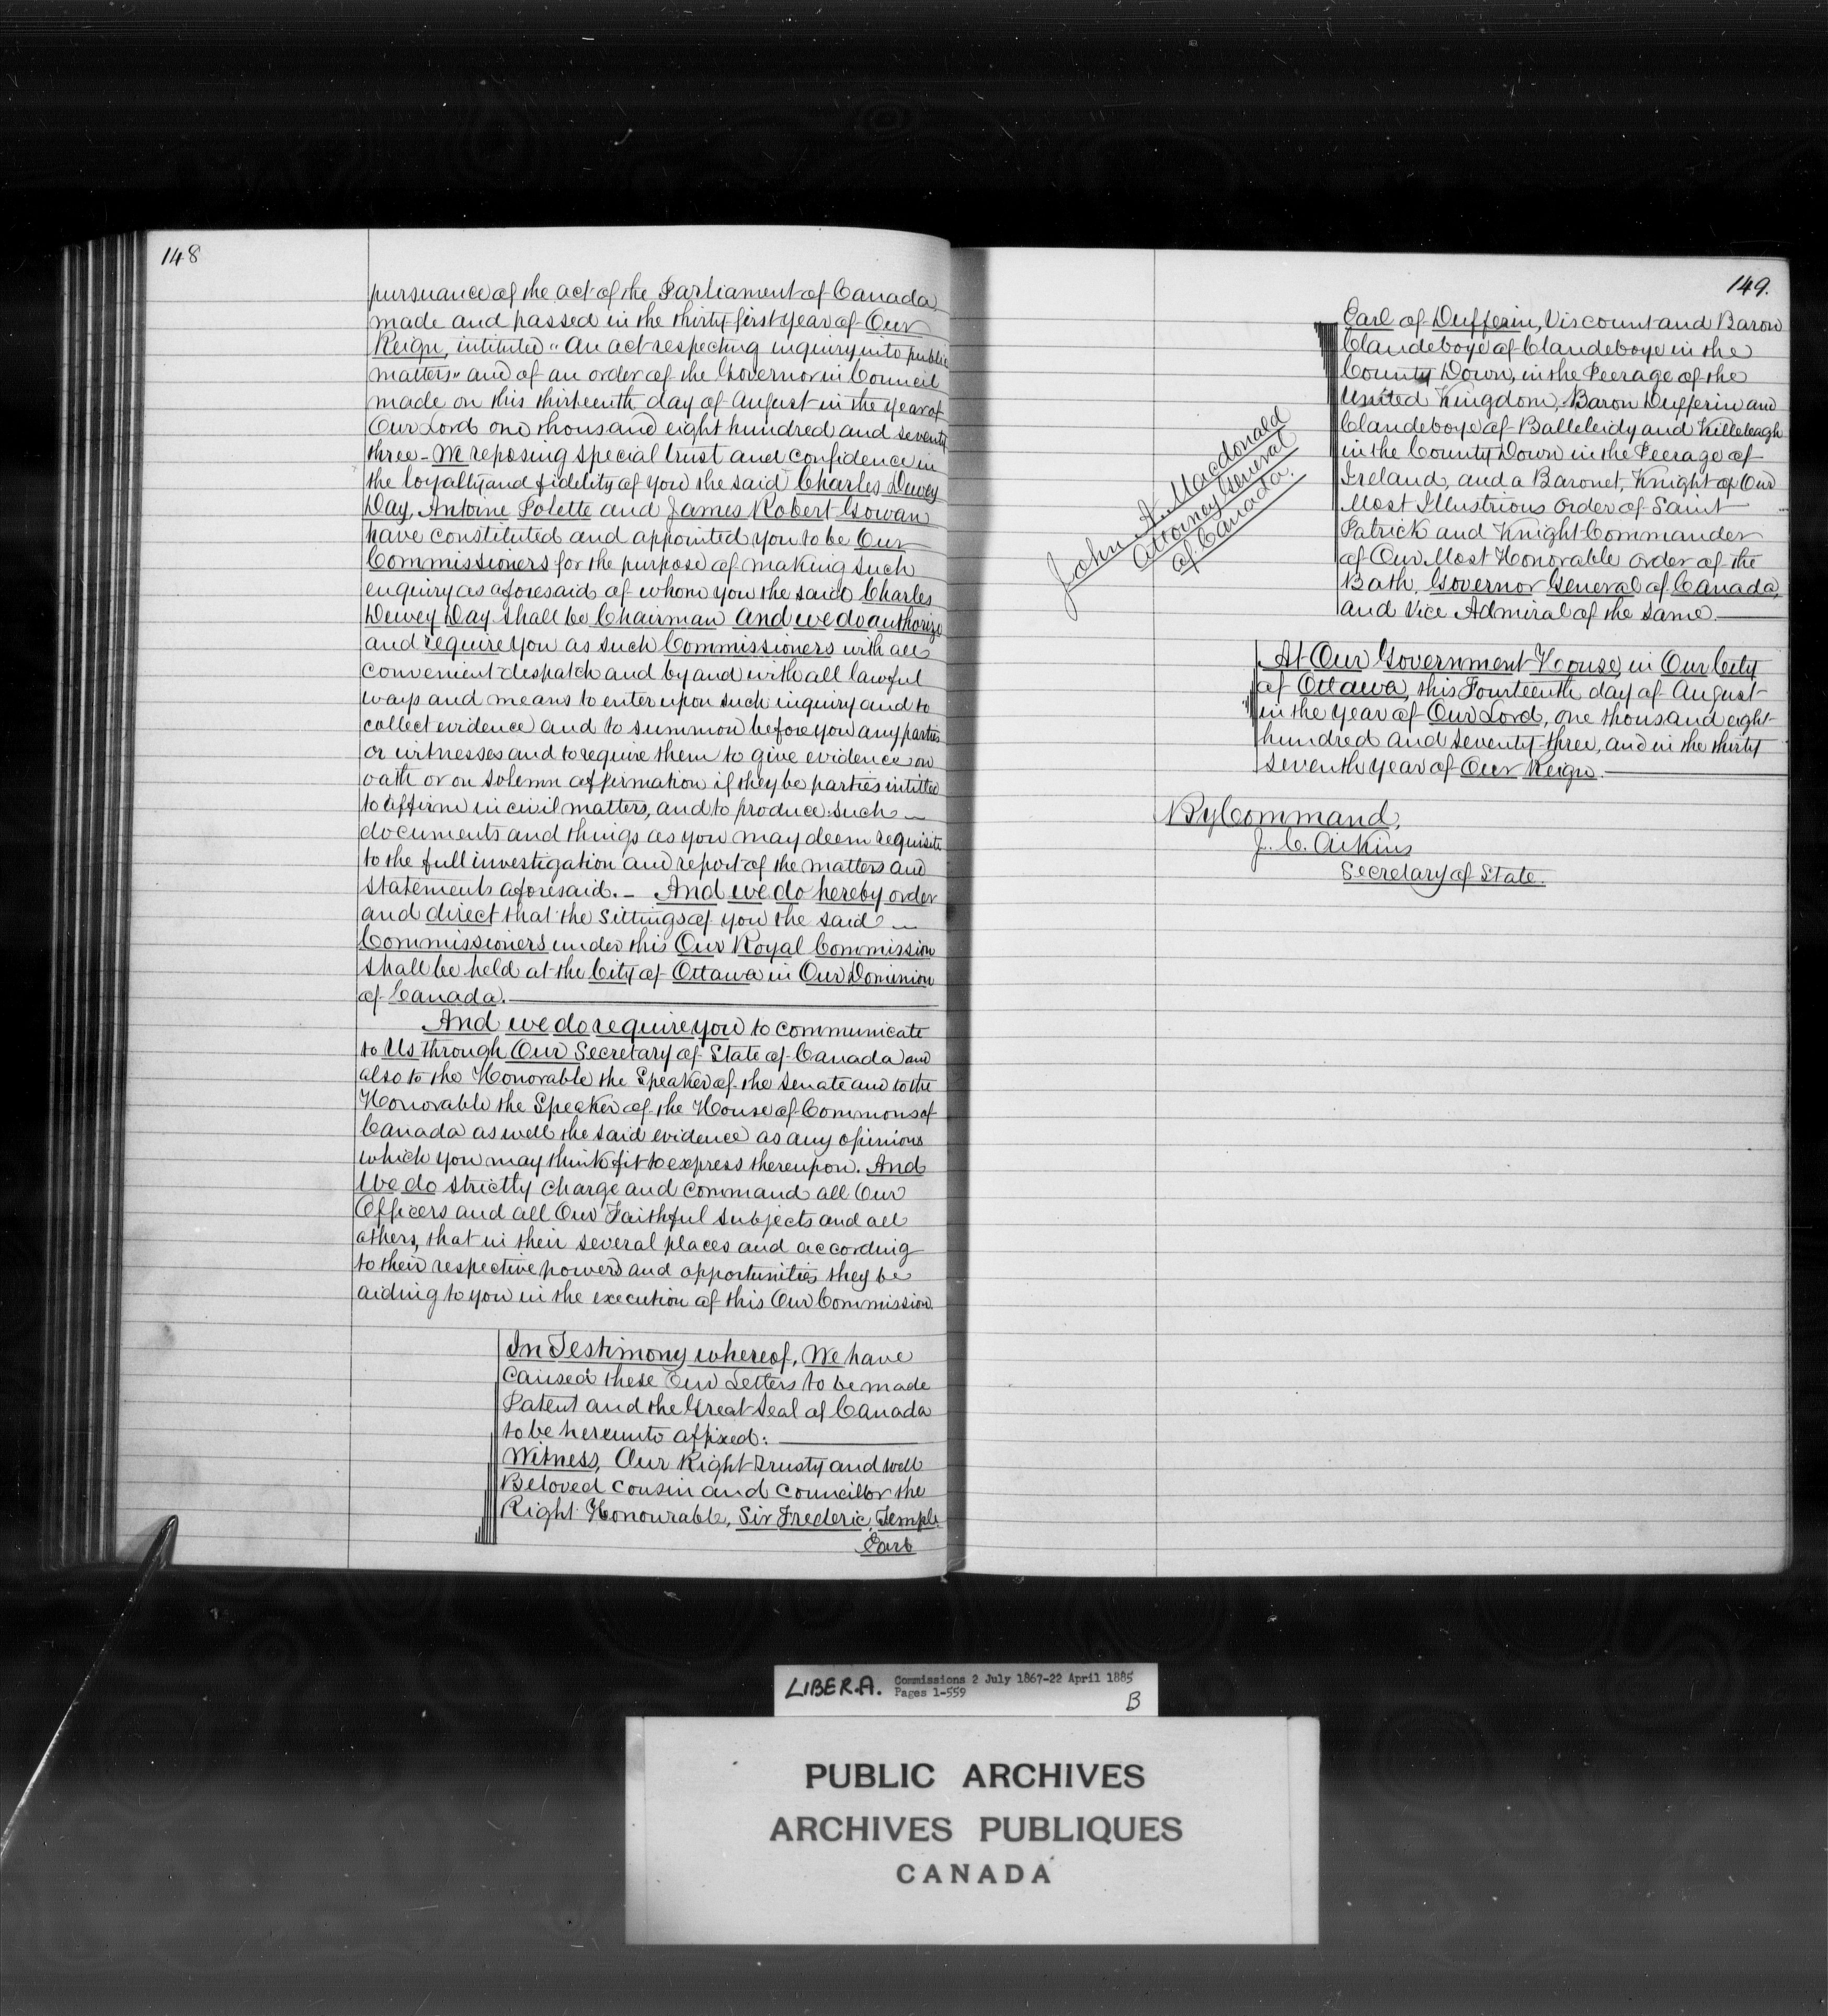 148
pursuance of the act of the Parliament of Canada,
made and passed in the thirty first year of Our
Reign, intituled "An act respecting inquiry into public
matters" and of an order of the Governor in Council
made on this thirteenth day of August in the year of
Our Lord one thousand eight hundred and seventy
three - We reposing special trust and confidence in
the loyalty and fidelity of you the said Charles Dewey
Day, Antoine Polette and James Robert Gowan
have constituted and appointed you to be Our
Commissioners for the purpose of making such
enquiry as aforesaid of whom you the said Charles
Dewey Day shall be Chairman And we do authorize
and require you as such Commissioners with all
convenient despatch and by and with all lawful
ways and means to enter upon such inquiry and to
collect evidence and to summon before you any parties
or witnesses and to require them to give evidence on
oath or on solemn affirmation if they be parties intitled
to affirm in civil matters, and to produce such
documents and things as you may deem requisite
to the full investigation and report of the matters and
statements aforesaid. - And we do hereby order
and direct that the sittings of you the said
Commissioners under this Our Royal Commission
shall be held at the City of Ottawa in Our Dominion
of Canada.
And we do require you to communicate
to Us through Our Secretary of State of Canada and
also to the Honorable the Speaker of the Senate and to the
Honorable the Speaker of the House of Commons of
Canada as well the said evidence as any opinions
which you may think fit to express thereupon. And
We do strictly charge and command all Our
Officers and all Our Faithful subjects and all
others, that in their several places and according
to their respective powers and opportunities they be
aiding to you in the execution of this Our Commission.
In Testimony whereof, We have
caused these Our Letters to be made
Patent and the Great Seal of Canada
to be hereunto affixed:
Witness, Our Right Trusty and well
Beloved Cousin and Councillor the
Right Honourable, Sir Frederic, Temple
Earl
149.
Earl of Dufferin, Viscount and Baron
Clandeboye of Clandeboye in the
County Down, in the Peerage of the
United Kingdom, Baron Dufferin and
Clandeboye of Balleleidy and Killeleagh
in the County Down in the Peerage of
Ireland, and a Baronet, Knight of Our
Most Illustrious order of Saint
Patrick and Knight Commander
of Our Most Honorable order of the
Bath, Governor General of Canada,
and Vice Admiral of the same.
John A. Macdonald
Attorney General
of Canada.
At Our Government House, in Our City
of Ottawa, this Fourteenth day of August
in the year of Our Lord, one thousand eight
hundred and seventy-three, and in the thirty
seventh year of Our Reign.
By Command,
J. C. Aikins
Secretary of State.
LIBER.A. Commissions 2 July 1867-22 April 1885
Pages 1-559
B
PUBLIC ARCHIVES
ARCHIVES PUBLIQUES
CANADA